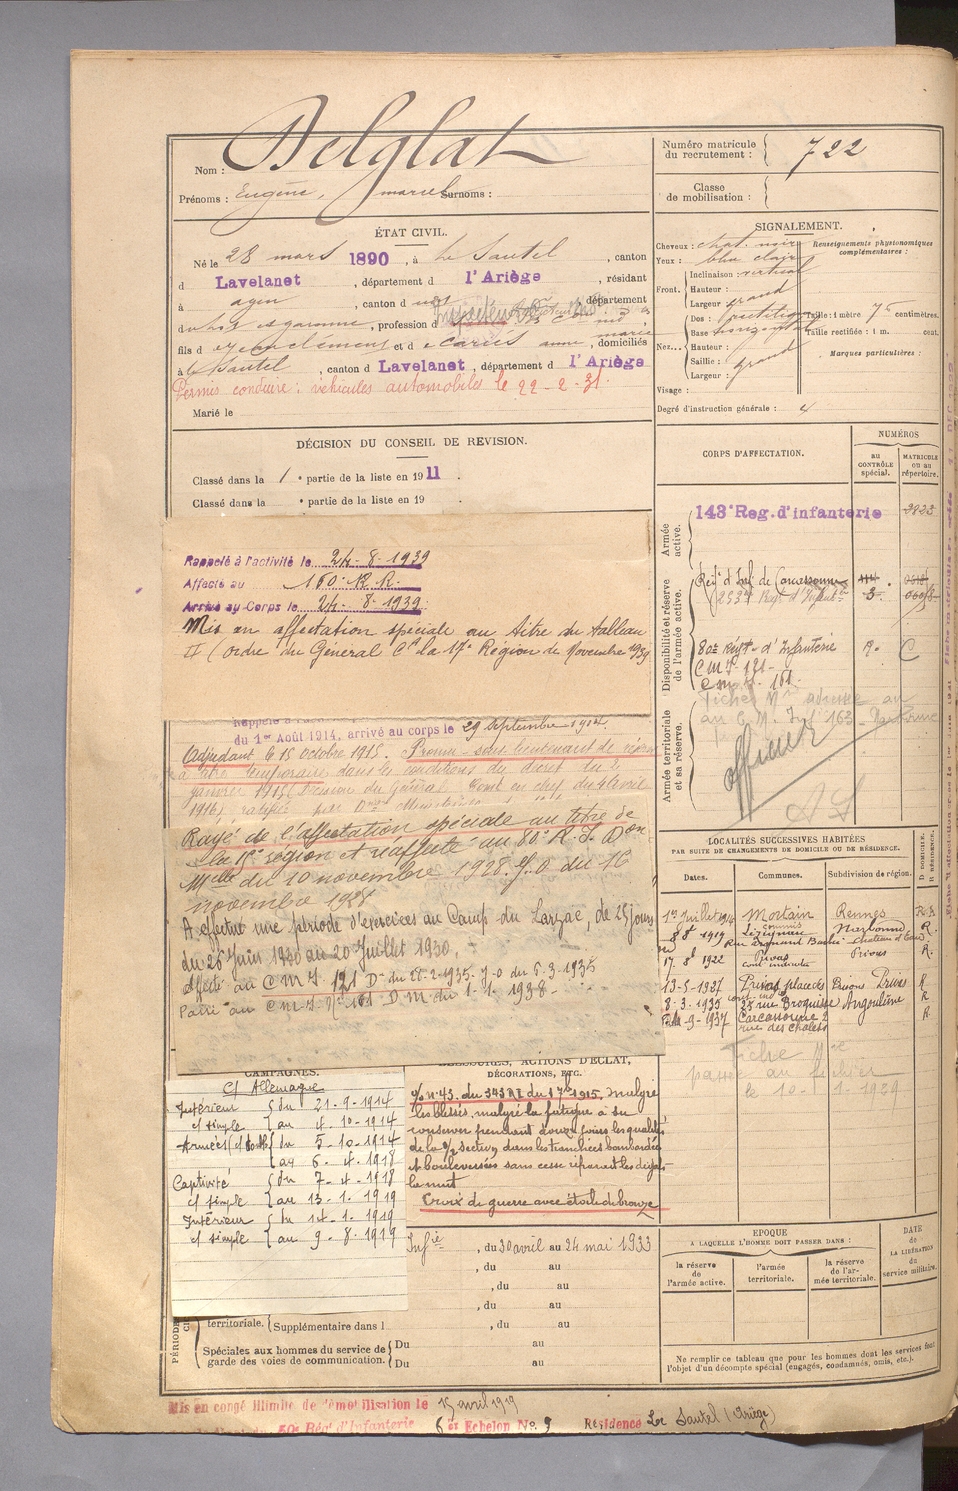 Nom : Delglat
Prénoms : Eugène, marcel Surnoms :
Numéro matricule du recrutement : 722
Classe de mobilisation :
ÉTAT CIVIL.
Né le 28 mars 1890, à Le Sautel, canton
d Lavelanet, département d l'Ariège, résidant
à agen, canton d, département
du lot et garonne, profession d
fils d Jean clément et d Cariés anne, domiciliés
à le Sautel, canton d Lavelanet, département d l'Ariège
Permis conduire : véhicules automobiles le 22-2-31.
Marié le
SIGNALEMENT.
Cheveux : chat. noir
Yeux : bleu clair
Front. Inclinaison : vertical
Hauteur :
Largeur grand
Nez... Dos : rectiligne
Base horizontal
Hauteur :
Saillie : grand
Largeur :
Visage :
Renseignements physionomiques complémentaires :
Taille : 1 mètre 75 centimètres.
Taille rectifiée : 1 m. cent.
Marques particulières :
Degré d'instruction générale : 4
DÉCISION DU CONSEIL DE REVISION.
Classé dans la 1e partie de la liste en 1911.
Classé dans la e partie de la liste en 19 .
Rappelé à l'activité le 24-8-1939
Affecté au 160e R. R.
Arrivé au Corps le 24-8-1939
Mis en affectation spéciale au titre du tableau
II (ordre du Général Ct la 17e Région de Novembre 1939
du 1er Août 1914, arrivé au corps le 29 Septembre 1914
Adjudant le 15 octobre 1915. Promu sous lieutenant de réserve
à titre temporaire dans les conditions du décret du 2
janvier 1915 (Décision du Général Comt en chef du 4 avril
1916), ratifiée par Don Ministérielle
Rayé de l'affectation spéciale au titre de
la région et réaffecté au 80e R. I. Don
Mlle du 10 novembre 1928. J. O du 16
novembre 1928
A effectué une période d'exercices au Camp du Larzac, de 25 jours
du 26 Juin 1930 au 20 Juillet 1930.
Affecté au C M I 121 Dn du 28-2-1935. J-O du 6-3-1935
Passé au C M I No 161 D. M du 1-1-1938
CORPS D'AFFECTATION.
NUMÉROS
au CONTRÔLE spécial.
MATRICULE ou au répertoire.
Armée active.
143e Reg. d'infanterie
Disponibilité et réserve de l'armée active.
Régt d'Inf. de Carcassonne
253e Régt d'Infantie 3.
80e Régt d'Infanterie C
C M I. 121.
C M I. 161.
Armée territoriale et sa réserve.
Fiche Mle adressée au
au C. M. Inf 163 Narbonne
officier
LOCALITÉS SUCCESSIVES HABITÉES
PAR SUITE DE CHANGEMENTS DE DOMICILE OU DE RÉSIDENCE.
Dates. Communes. Subdivision de région. D. DOMICILE. R. RÉSIDENCE.
1er Juillet 1914 Mortain Rennes
8 8t 1919 Lézignan Narbonne R.
17. 8t 1922 Privas Privas R.
13-5-1927 Privas place des Privas R
8-3-1935 25 rue Broquisse Angoulême R
9-1937 Carcassonne 2 rue des Chalets R
Fiche Mle
passée au fichier
le 10-1-1939
CAMPAGNES.
C/ Allemagne
Intérieur du 21-9-1914
c/ simple au 4-10-1914
Armées (c/ double) du 5-10-1914
au 6-4-1918
Captivité du 7-4-1918
c/ simple au 13-1-1919
Intérieur du 14-1-1919
c/ simple au 9-8-1919
BLESSURES, ACTIONS D'ÉCLAT,
DÉCORATIONS, ETC.
O/ no 43 du 343 RI du 1915, malgré
les blessés, malgré la fatigue a su
conserver pendant douze jours les qualités
de la 1/2 section dans les tranchées bombardées
et bouleversées sans cesse réparant les dégâts
la nuit
Croix de guerre avec étoile de bronze
Infie, du 30 avril au 24 mai 1933
, du au
, du au
, du au
territoriale. Supplémentaire dans l , du au
Spéciales aux hommes du service de garde des voies de communication.
Du au
Du au
EPOQUE
A LAQUELLE L'HOMME DOIT PASSER DANS :
la réserve de l'armée active.
l'armée territoriale.
la réserve de l'armée territoriale.
DATE de LA LIBÉRATION du service militaire.
Ne remplir ce tableau que pour les hommes dont les services font
l'objet d'un décompte spécial (engagés, condamnés, omis, etc.).
Mis en congé illimité de démobilisation le 15 avril 1919
50e Rég. d'Infanterie 6e Echelon No 9 Résidence Le Sautel (Ariège)